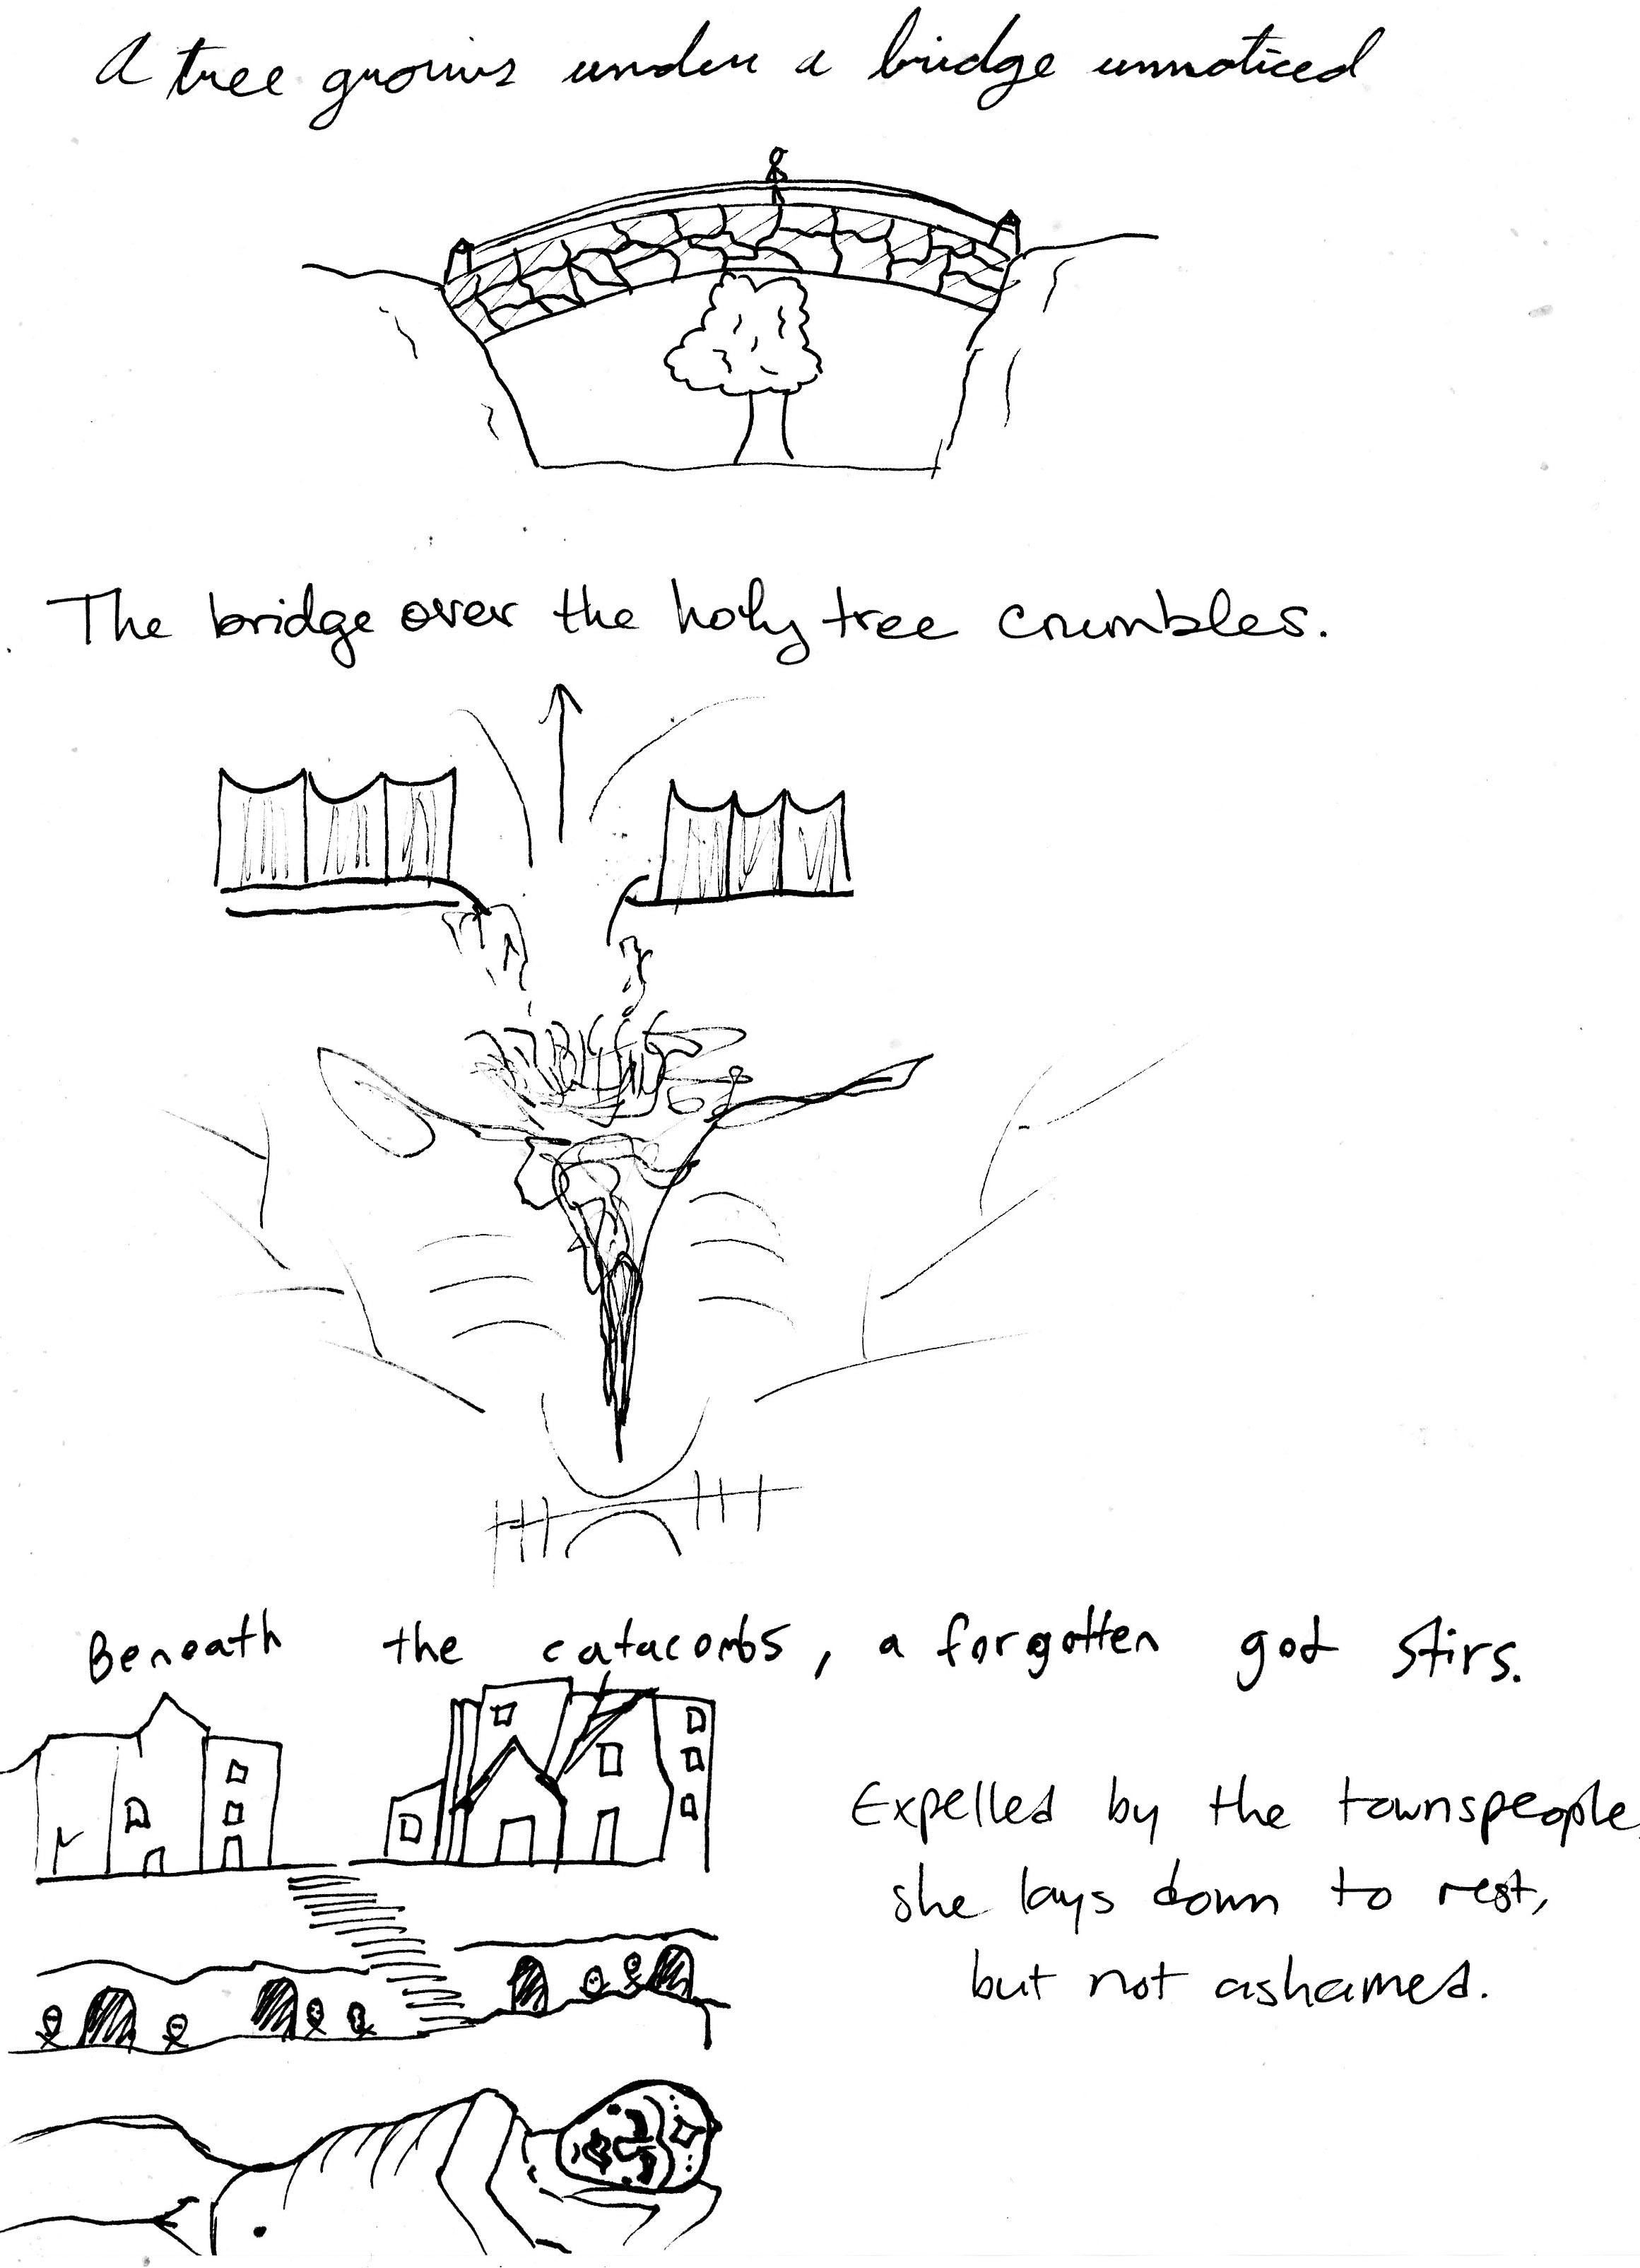 A tree grows under a bridge unnoticed
The bridge over the holy tree crumbles.
Beneath the catacombs, a forgotten god stirs.
Expelled by the townspeople,
she lays down to rest,
but not ashamed.